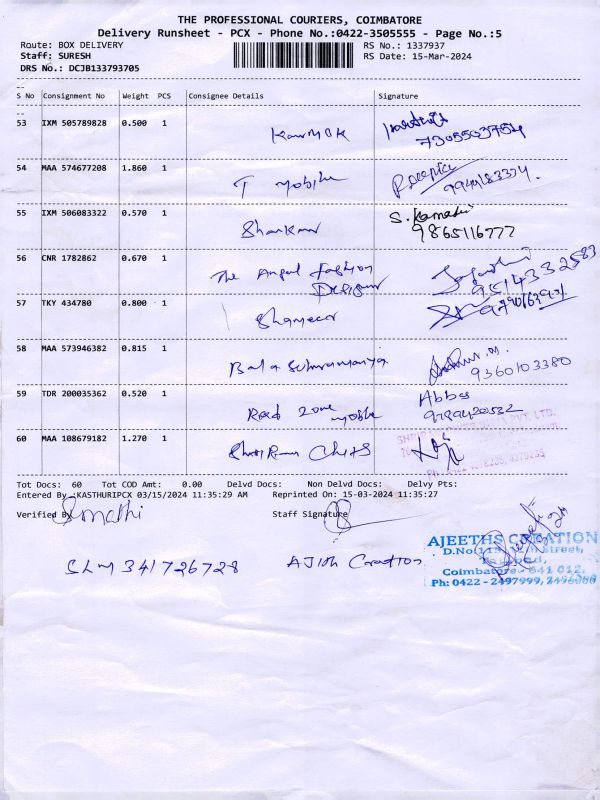 THE PROFESSIONAL COURIERS, COIMBATORE
Delivery Runsheet - PCX - Phone No.:0422-3505555 - Page No.:5
Route: BOX DELIVERY RS No.: 1337937
Staff: SURESH RS Date: 15-Mar-2024
DRS No.: DCJB133793705
S No Consignment No Weight PCS Consignee Details Signature
53 IXM 505789828 0.500 1
54 MAA 574677208 1.860 1 T mobile
55 IXM 506083322 0.570 1 Shankar S. Kamadhi
9865116777
56 CNR 1782862 0.670 1 The Angel Fashion
Designer 9514332583
57 TKY 434780 0.800 1 Shameer
58 MAA 573946382 0.815 1 Bala Subramaniya
9360103380
59 TDR 200035362 0.520 1 Red Zone Mobile Abbas
9789420522
60 MAA 108679182 1.270 1 Shri Ram Chits
Tot Docs: 60 Tot COD Amt: 0.00 Delvd Docs: Non Delvd Docs: Delvy Pts:
Entered By :KASTHURIPCX 03/15/2024 11:35:29 AM Reprinted On: 15-03-2024 11:35:27
Verified By Sumathi Staff Signature
SLM 341726728 AJith Creation
AJEETHS CREATION
D.No Street,
Coimbatore - 641 012.
Ph: 0422 - 2497999,